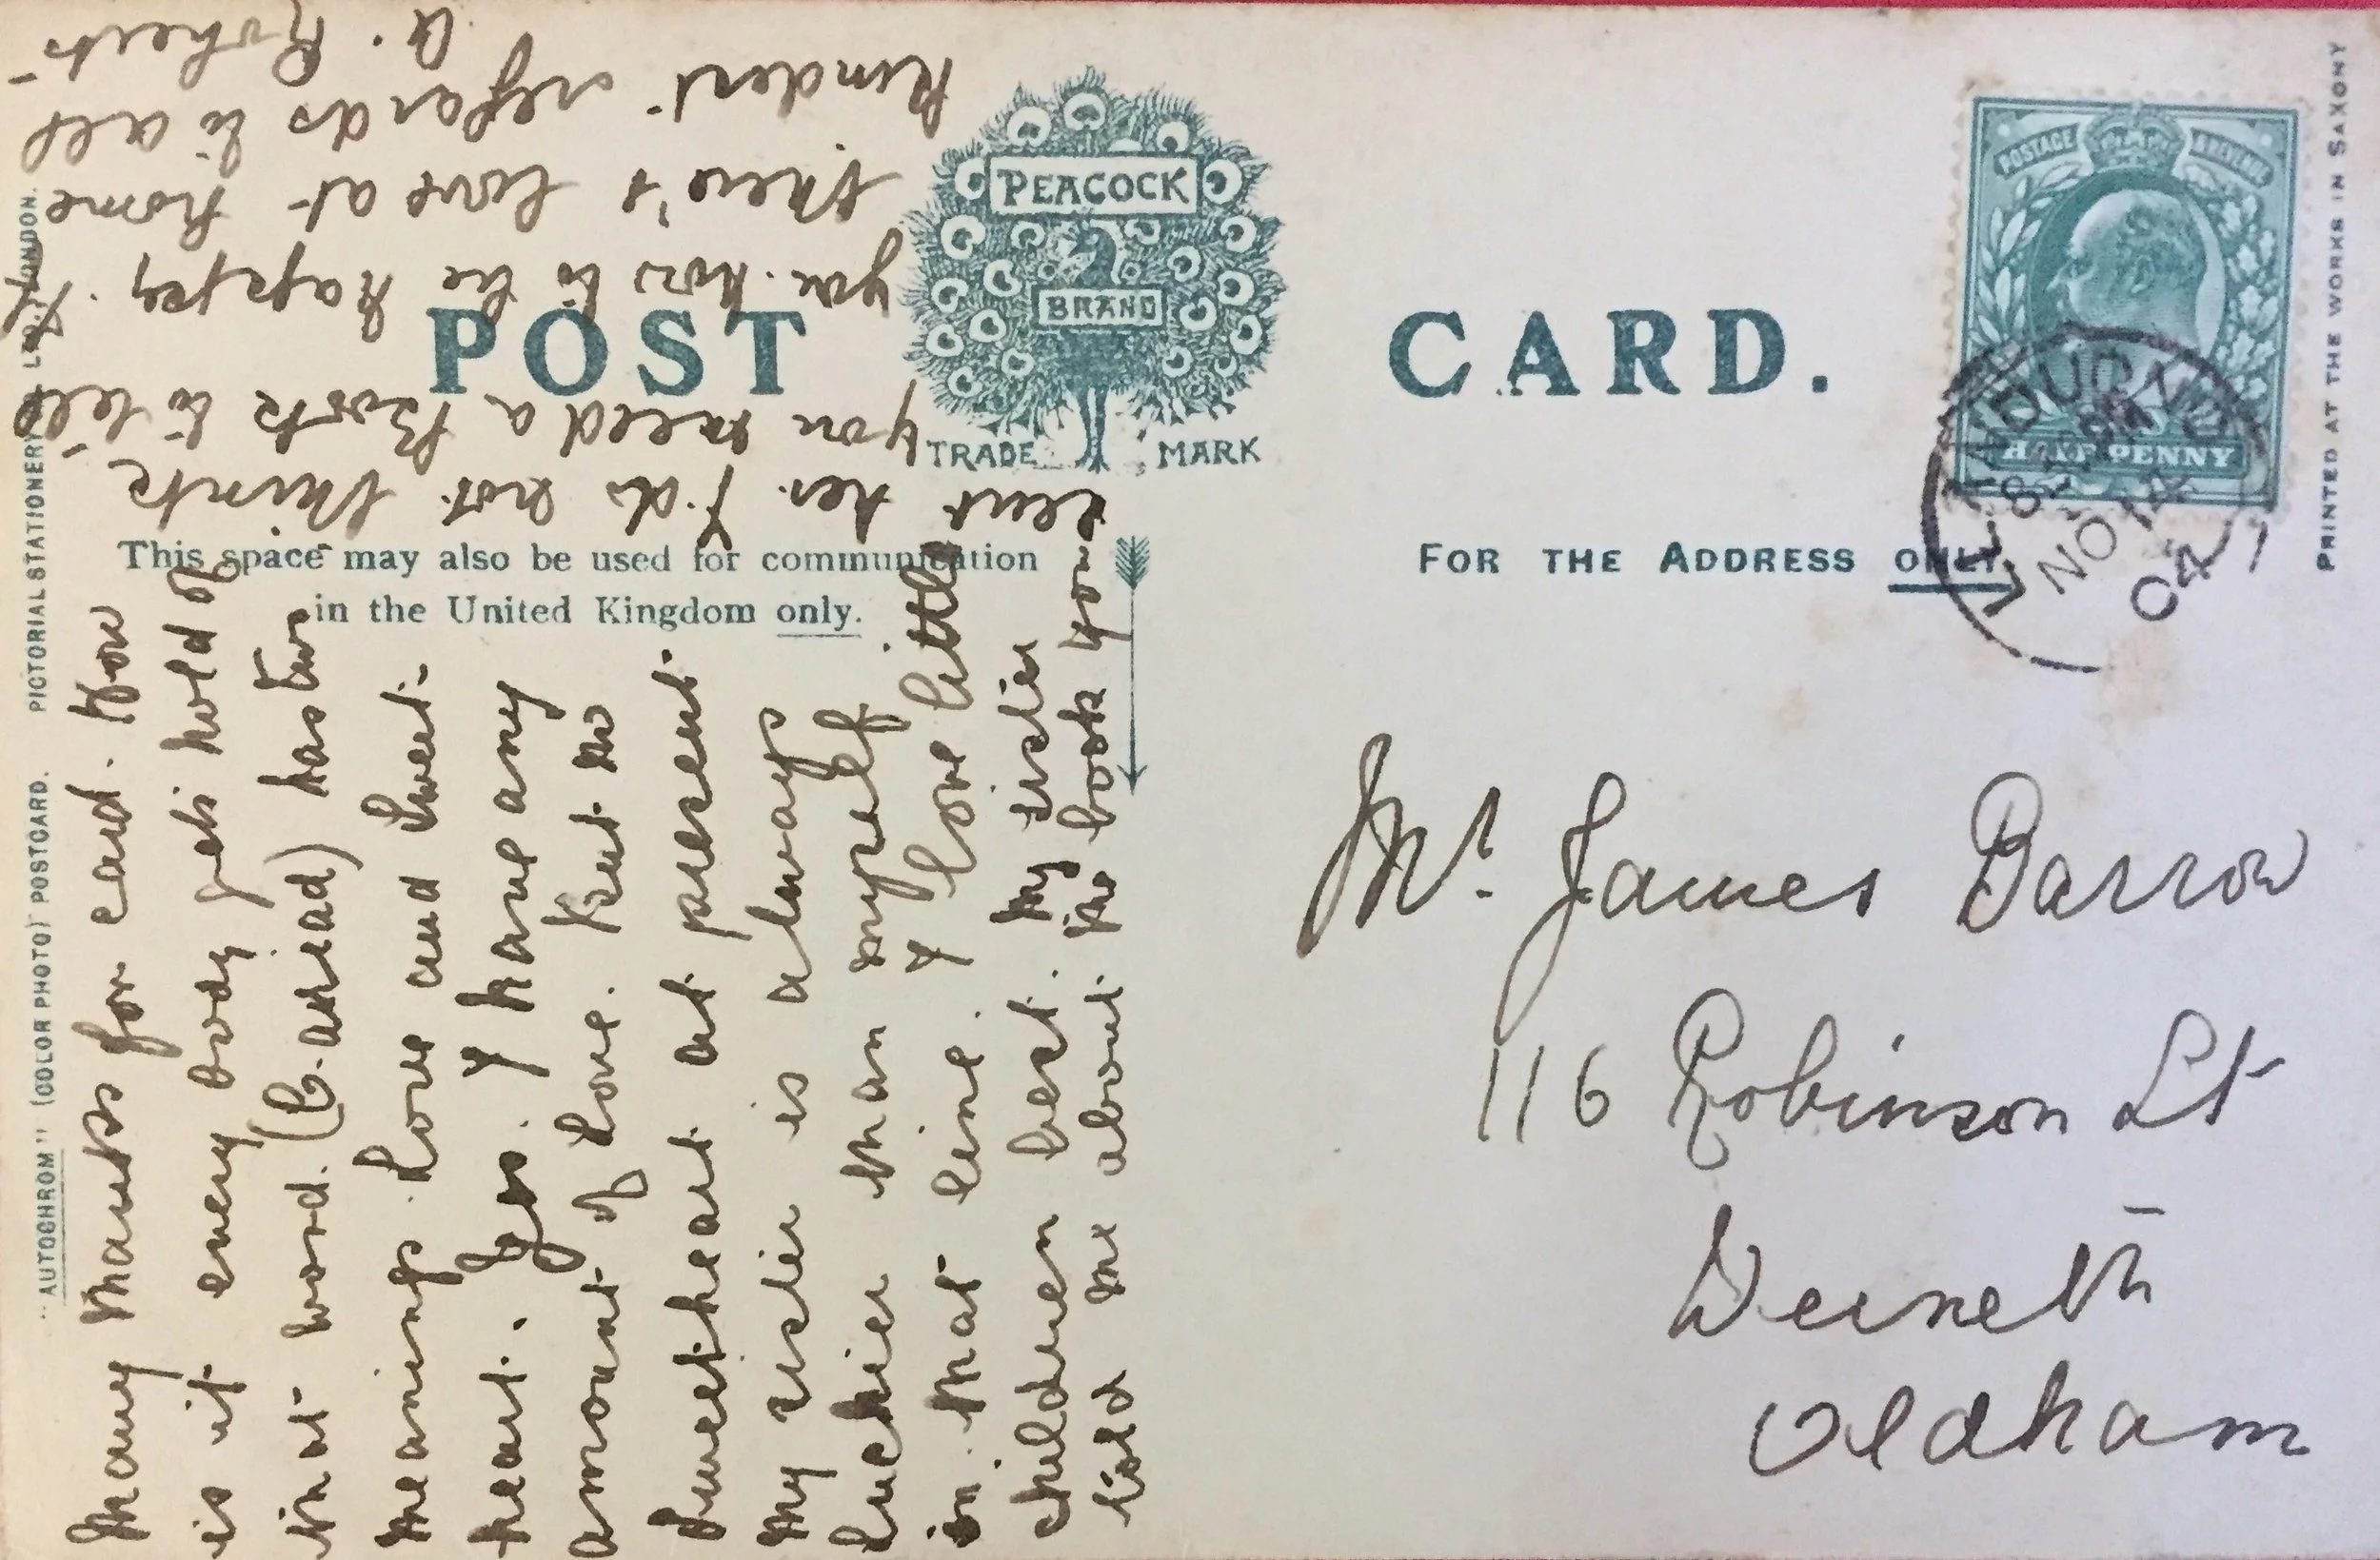 Many thanks for card. How
is it every body gets hold of
that word. (Cariad) has two
meanings. Love and Sweet-
heart. Yes. I have any
amount of Love. But no
Sweetheart at present.
My sister is always
luckier than myself
in that line. I love little
children best. My sister
told me about the book you
sent her. I do not think
you need a Book to tell
you how to be happy.
there's love at home
Kindest regards to all
A. Roberts
POST CARD.
PEACOCK
BRAND
TRADE MARK
This space may also be used for communication
in the United Kingdom only.
FOR THE ADDRESS ONLY.
POSTAGE & REVENUE
HALFPENNY
LLANDUDNO
NO 14
04
Mr. James Barrow
116 Robinson St
Werneth
Oldham
"AUTOCHROM" (COLOR PHOTO) POSTCARD. PICTORIAL STATIONERY CO., LTD., LONDON.
PRINTED AT THE WORKS IN SAXONY